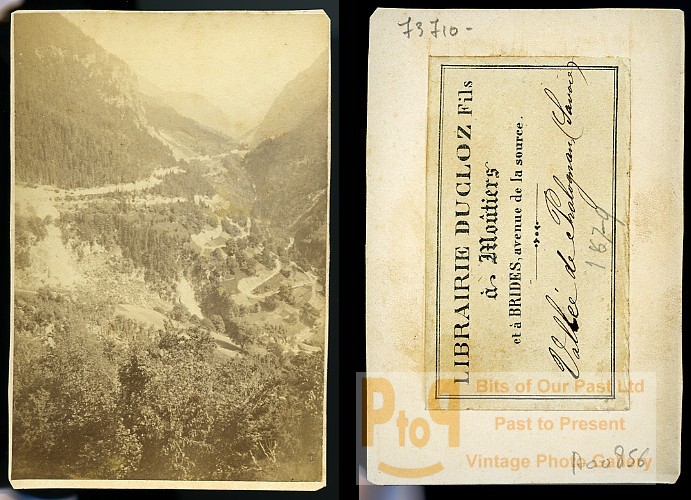 73710-
LIBRAIRIE DUCLOZ Fils
à Moûtiers
et à BRIDES, avenue de la source.
Vallée de Pralognan (Savoie)
1879
PtoP
Bits of Our Past Ltd
Past to Present
Vintage Photo Gallery
P00856